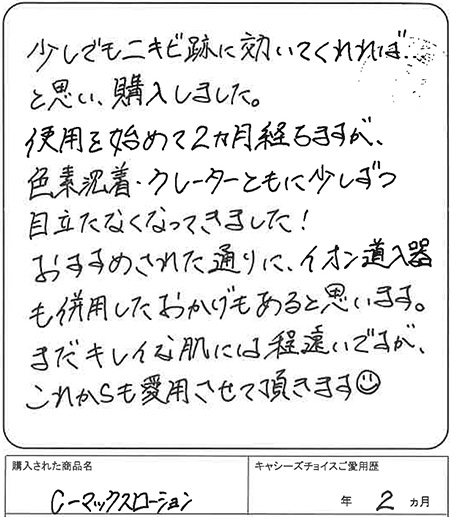 少しでもニキビ跡に効いてくれれば…
と思い、購入しました。
使用を始めて2カ月経ちますが、
色素沈着・クレーターともに少しずつ
目立たなくなってきました！
おすすめされた通りに、イオン導入器
も併用したおかげもあると思います。
まだキレイな肌には程遠いですが、
これからも愛用させて頂きます☺
購入された商品名
キャシーズチョイスご愛用歴
C-マックスローション
年 2 ヵ月